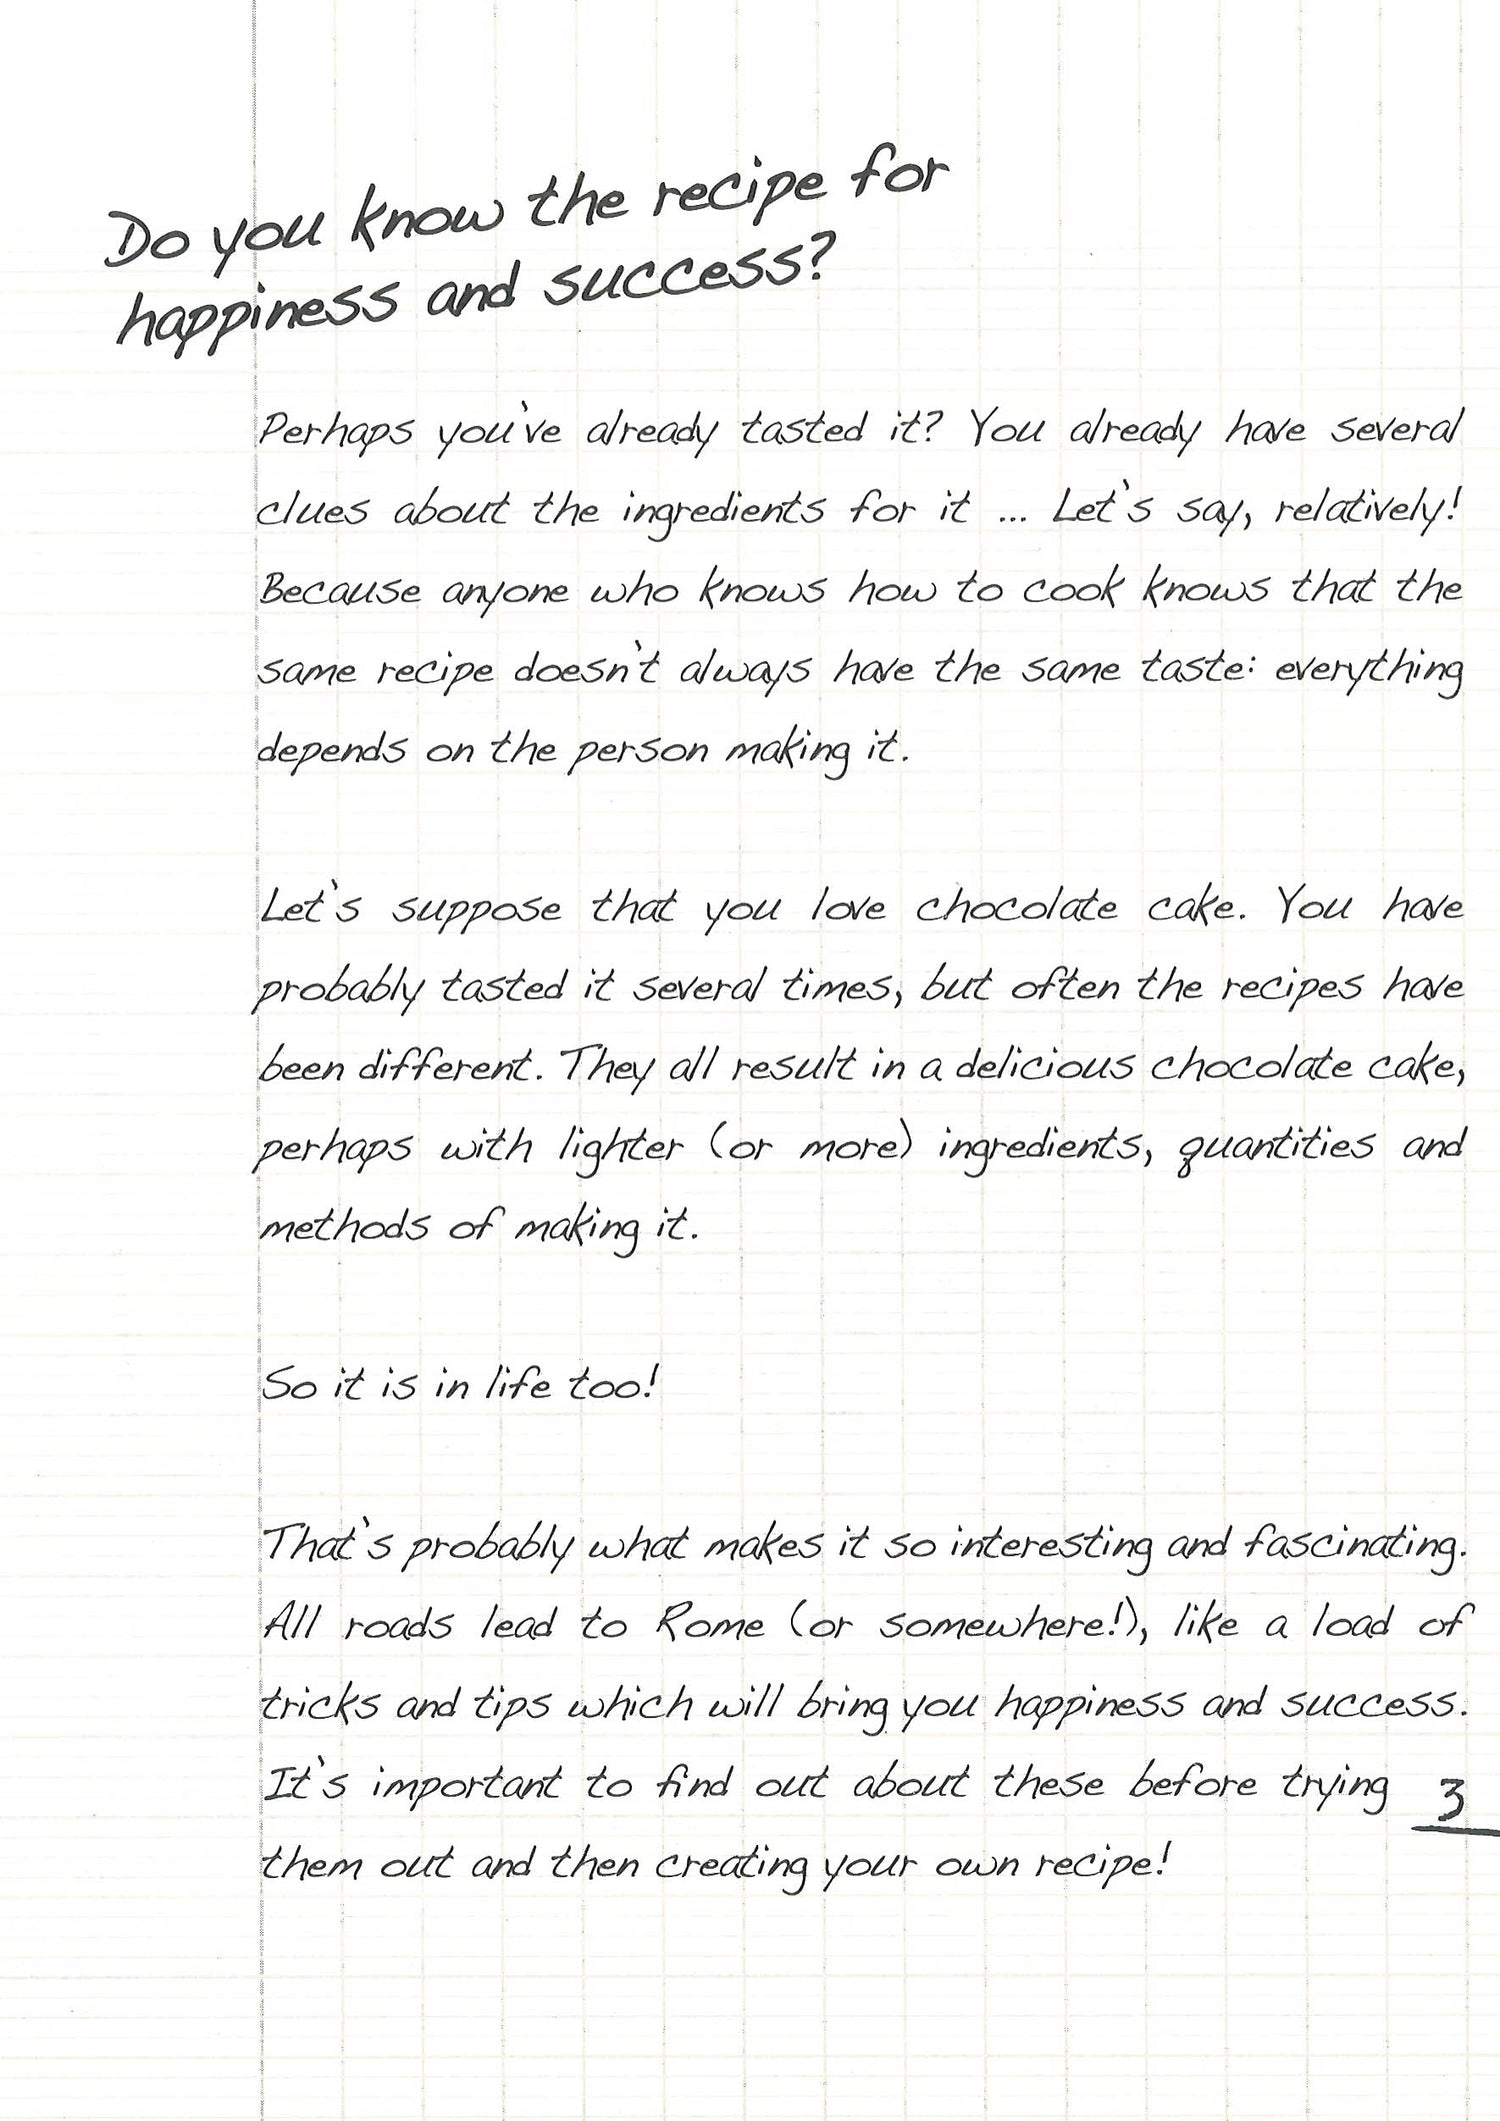 Do you know the recipe for
happiness and success?
Perhaps you've already tasted it? You already have several
clues about the ingredients for it ... Let's say, relatively!
Because anyone who knows how to cook knows that the
same recipe doesn't always have the same taste: everything
depends on the person making it.
Let's suppose that you love chocolate cake. You have
probably tasted it several times, but often the recipes have
been different. They all result in a delicious chocolate cake,
perhaps with lighter (or more) ingredients, quantities and
methods of making it.
So it is in life too!
That's probably what makes it so interesting and fascinating.
All roads lead to Rome (or somewhere!), like a load of
tricks and tips which will bring you happiness and success.
It's important to find out about these before trying
them out and then creating your own recipe!
3